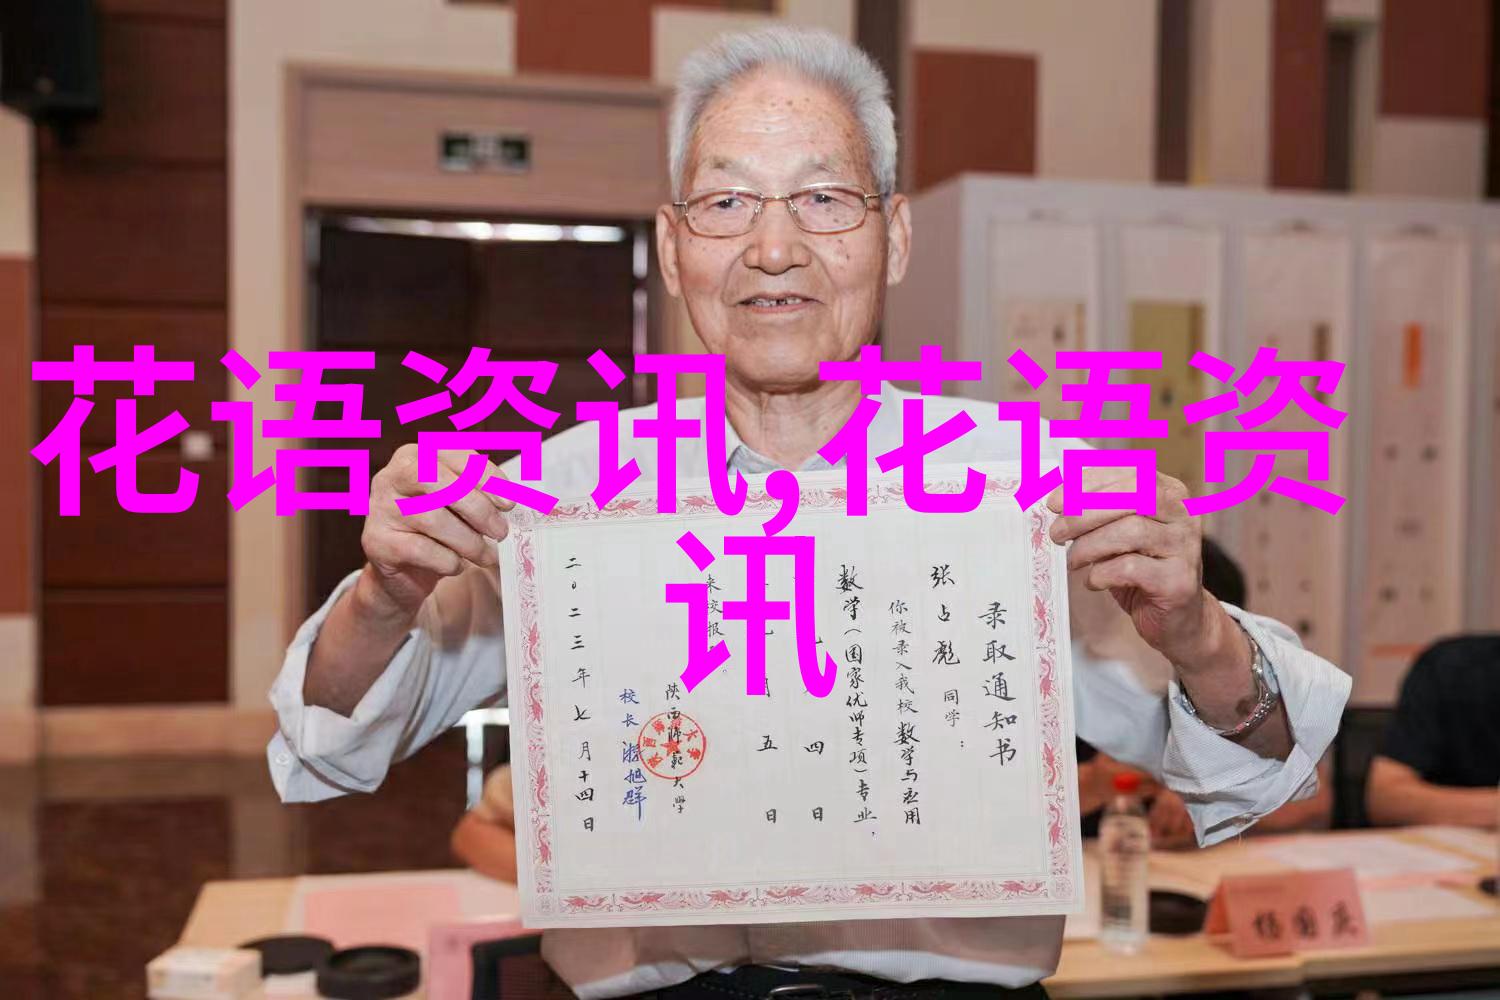 花语资讯,花语资
讯
录取通知书
张占彪 同学：
你被录入我校 数学与应用
数学（国家优师专项）专业，
四 日
月 五 日
来校报
陕西师范大学
校长 游旭群
二〇二三年七月十四日
杨国庆